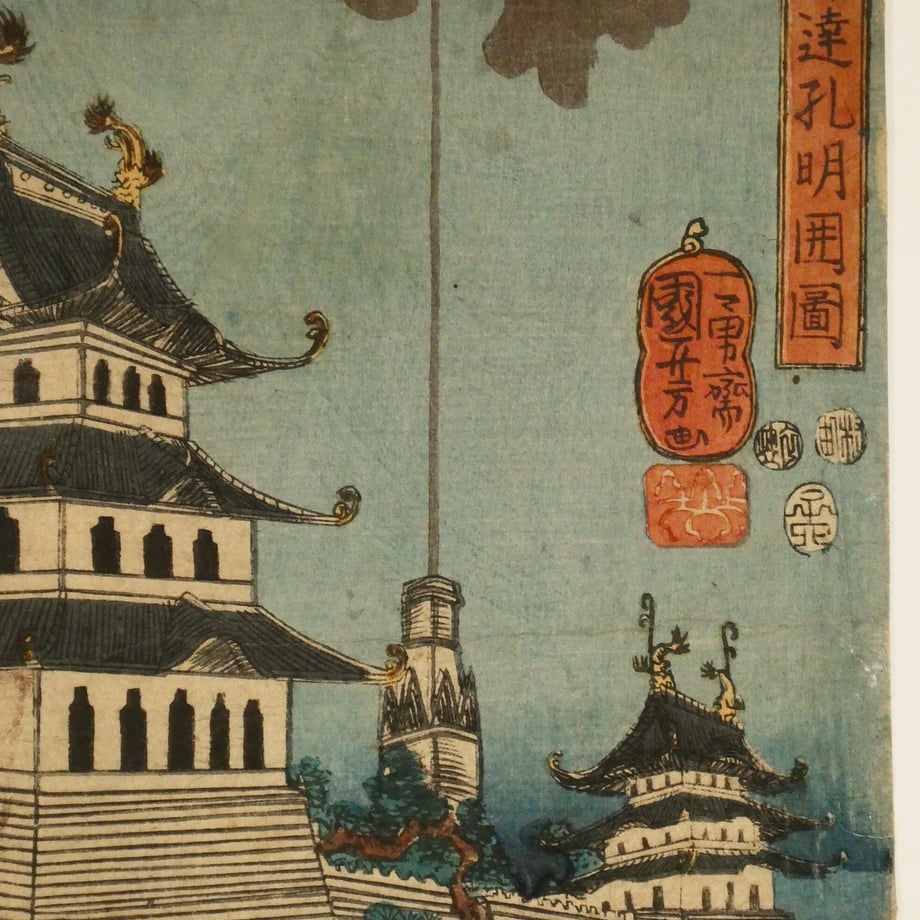 達孔明囲圖
一勇齋
國芳画